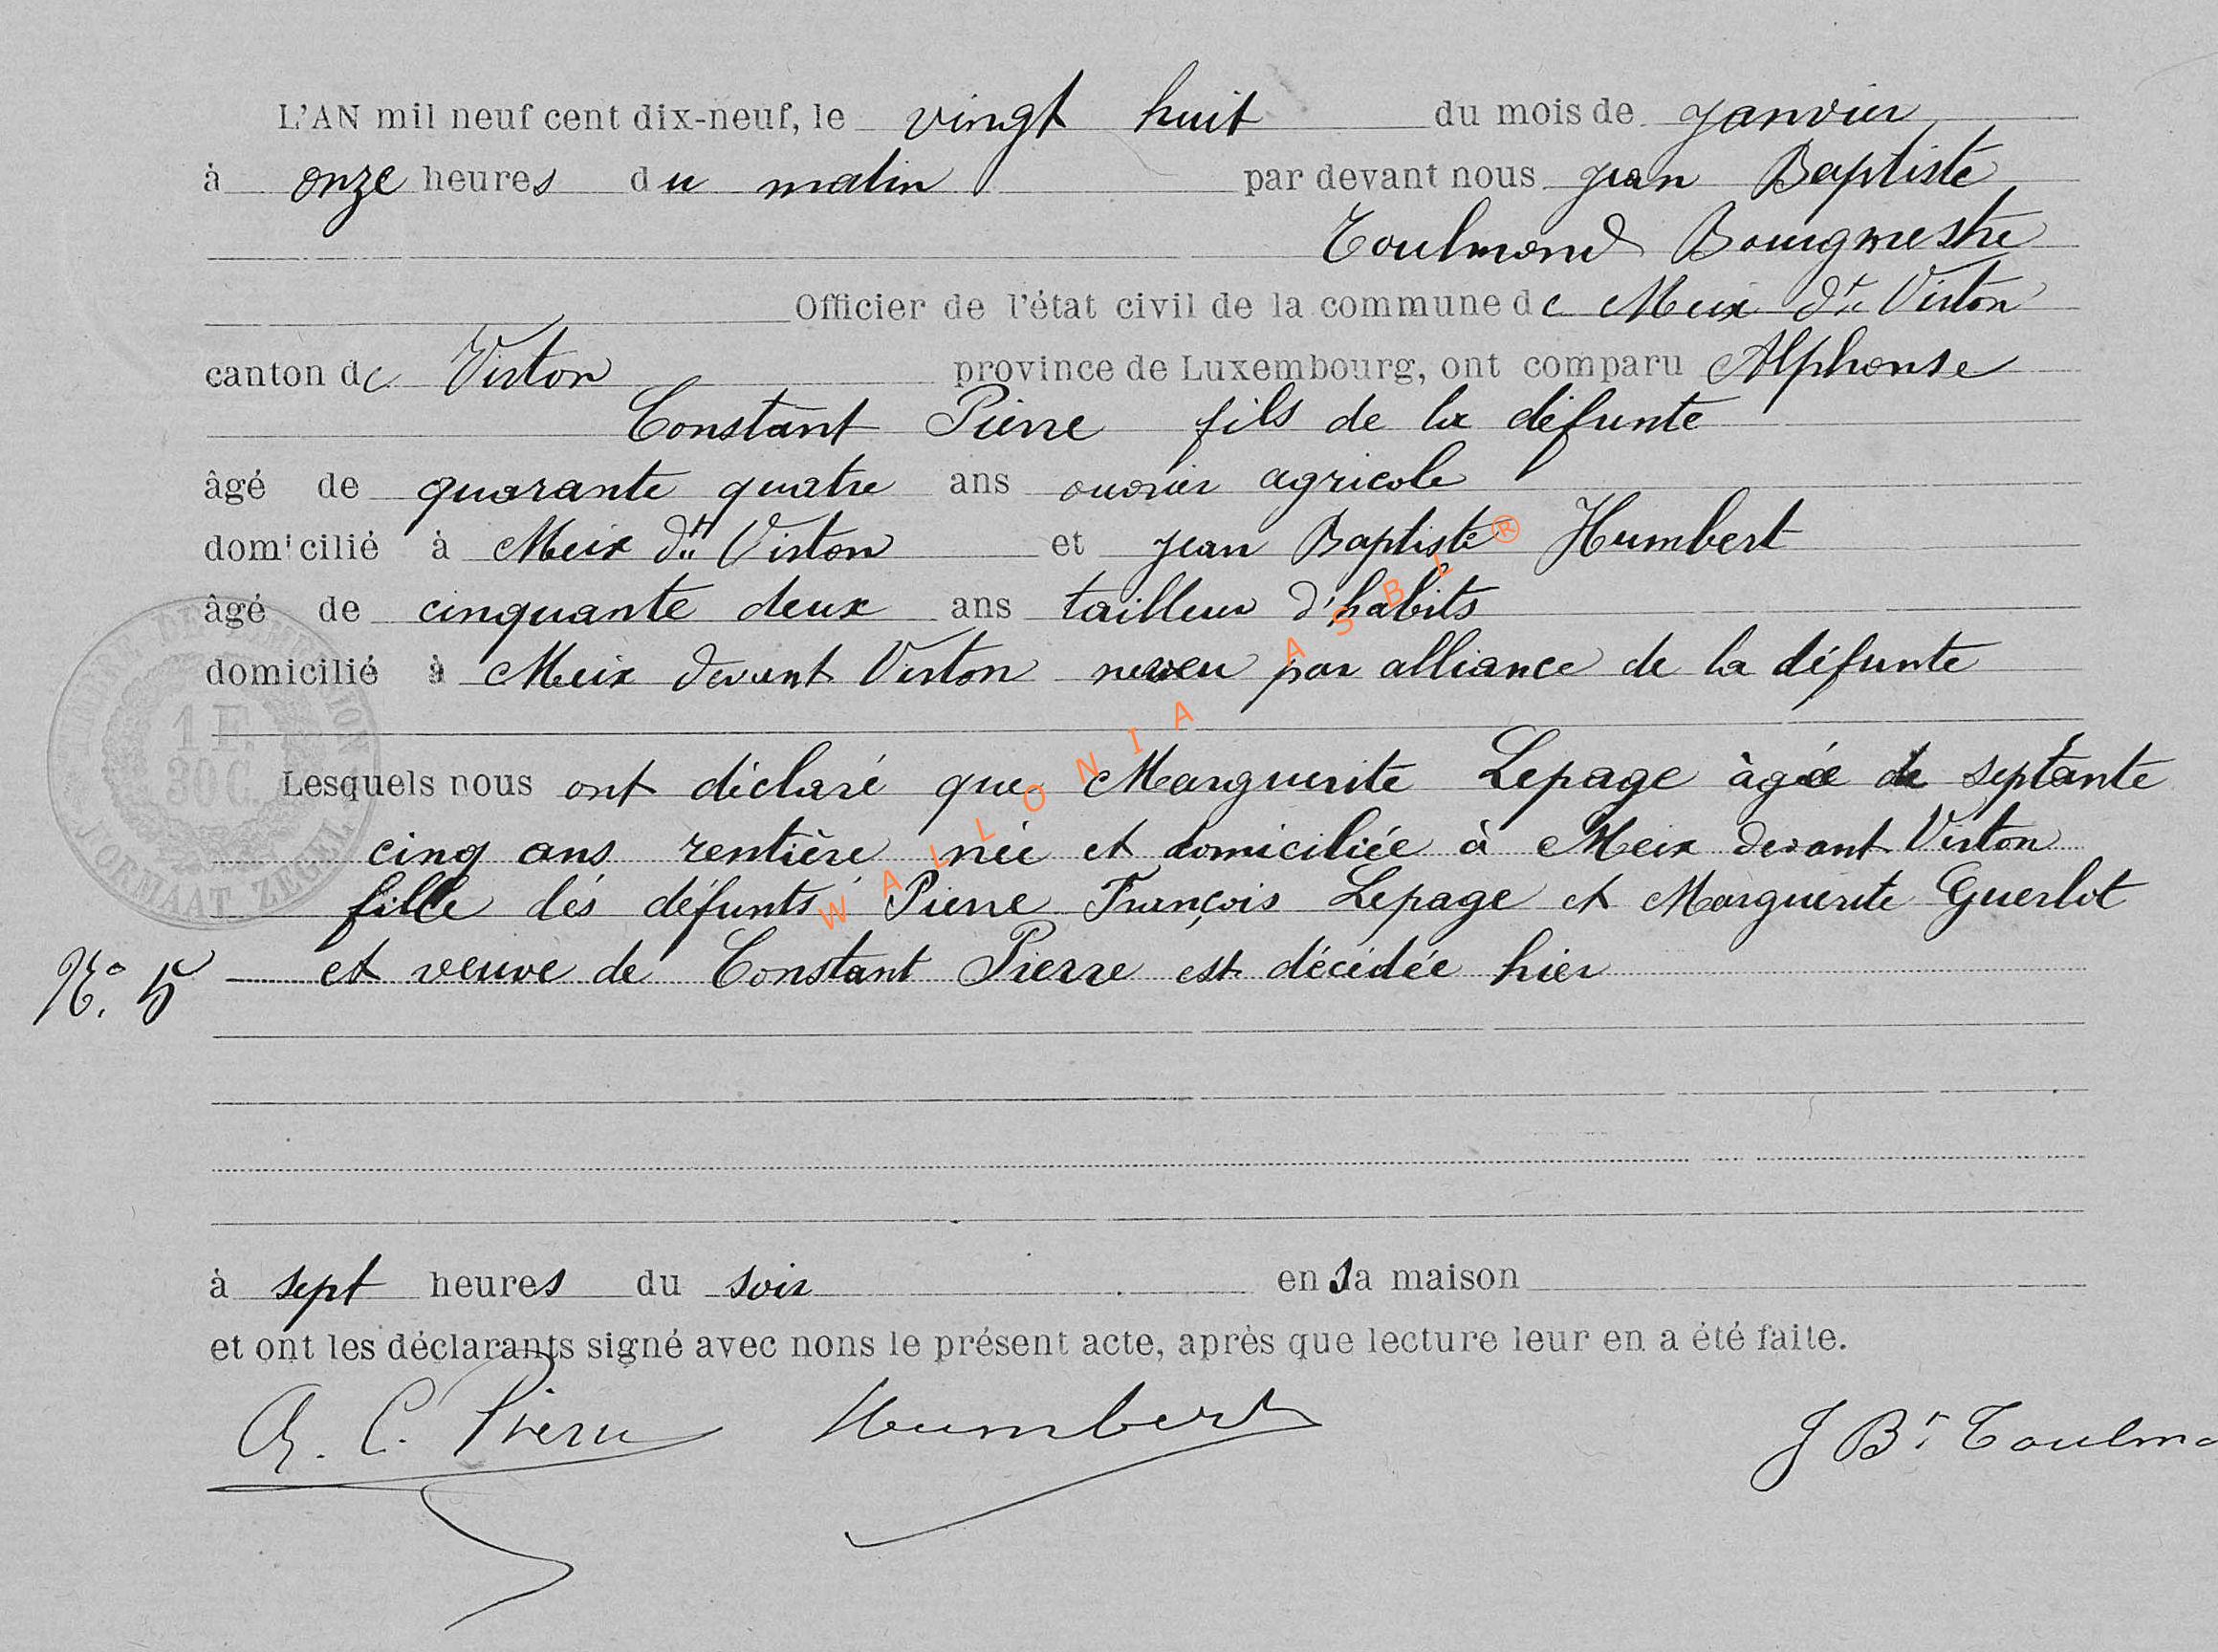 L'AN mil neuf cent dix-neuf, le vingt huit du mois de Janvier
à onze heures du matin par devant nous Jean Baptiste
Toulmond Bourgmestre
Officier de l'état civil de la commune de Meix dt Virton
canton de Virton province de Luxembourg, ont comparu Alphonse
Constant Pierre fils de la défunte
âgé de quarante quatre ans ouvrier agricole
domicilié à Meix dt Virton et Jean Baptiste Humbert
âgé de cinquante deux ans tailleur d'habits
domicilié à Meix devant Virton neveu par alliance de la défunte
Lesquels nous ont déclaré que Marguerite Lepage âgée de septante
cinq ans rentière née et domiciliée à Meix devant Virton
fille des défunts Pierre François Lepage et Marguerite Guerlot
N° 5 et veuve de Constant Pierre est décédée hier
à sept heures du soir en sa maison
et ont les déclarants signé avec nons le présent acte, après que lecture leur en a été faite.
A. C. Pierre Humbert J Bte Toulmo
1 F.
30 C.
FORMAAT ZEGEL
WALLONIA ASBL ®